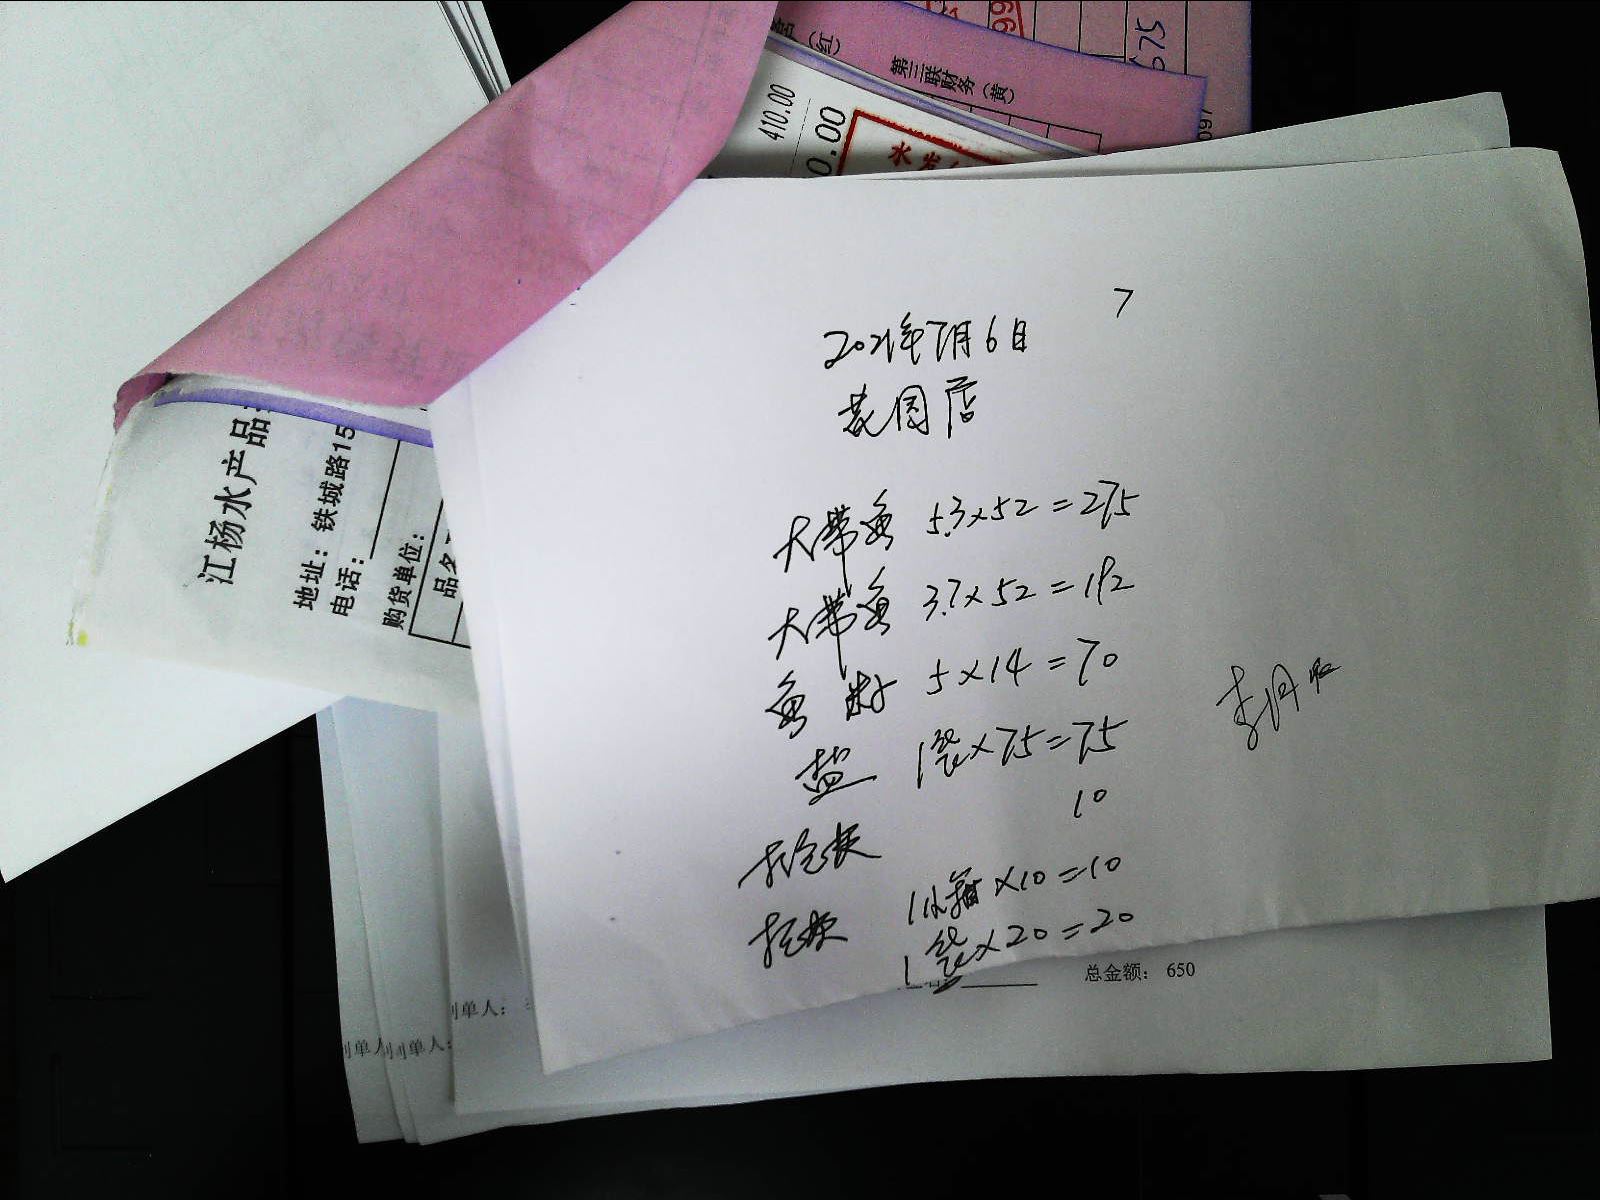 7
2021年7月6日
花园店
大带鱼 5.3×52=275
大带鱼 3.7×52=192
鱼籽 5×14=70
盐 1袋×75=75
10
1小箱×10=10
1袋×20=20
李丹
总金额: 650
制单人:
制单人:
江杨水产品
地址: 铁城路15
电话:
购货单位:
品名
410.00
0.00
(红)
第三联财务(黄)
675
097